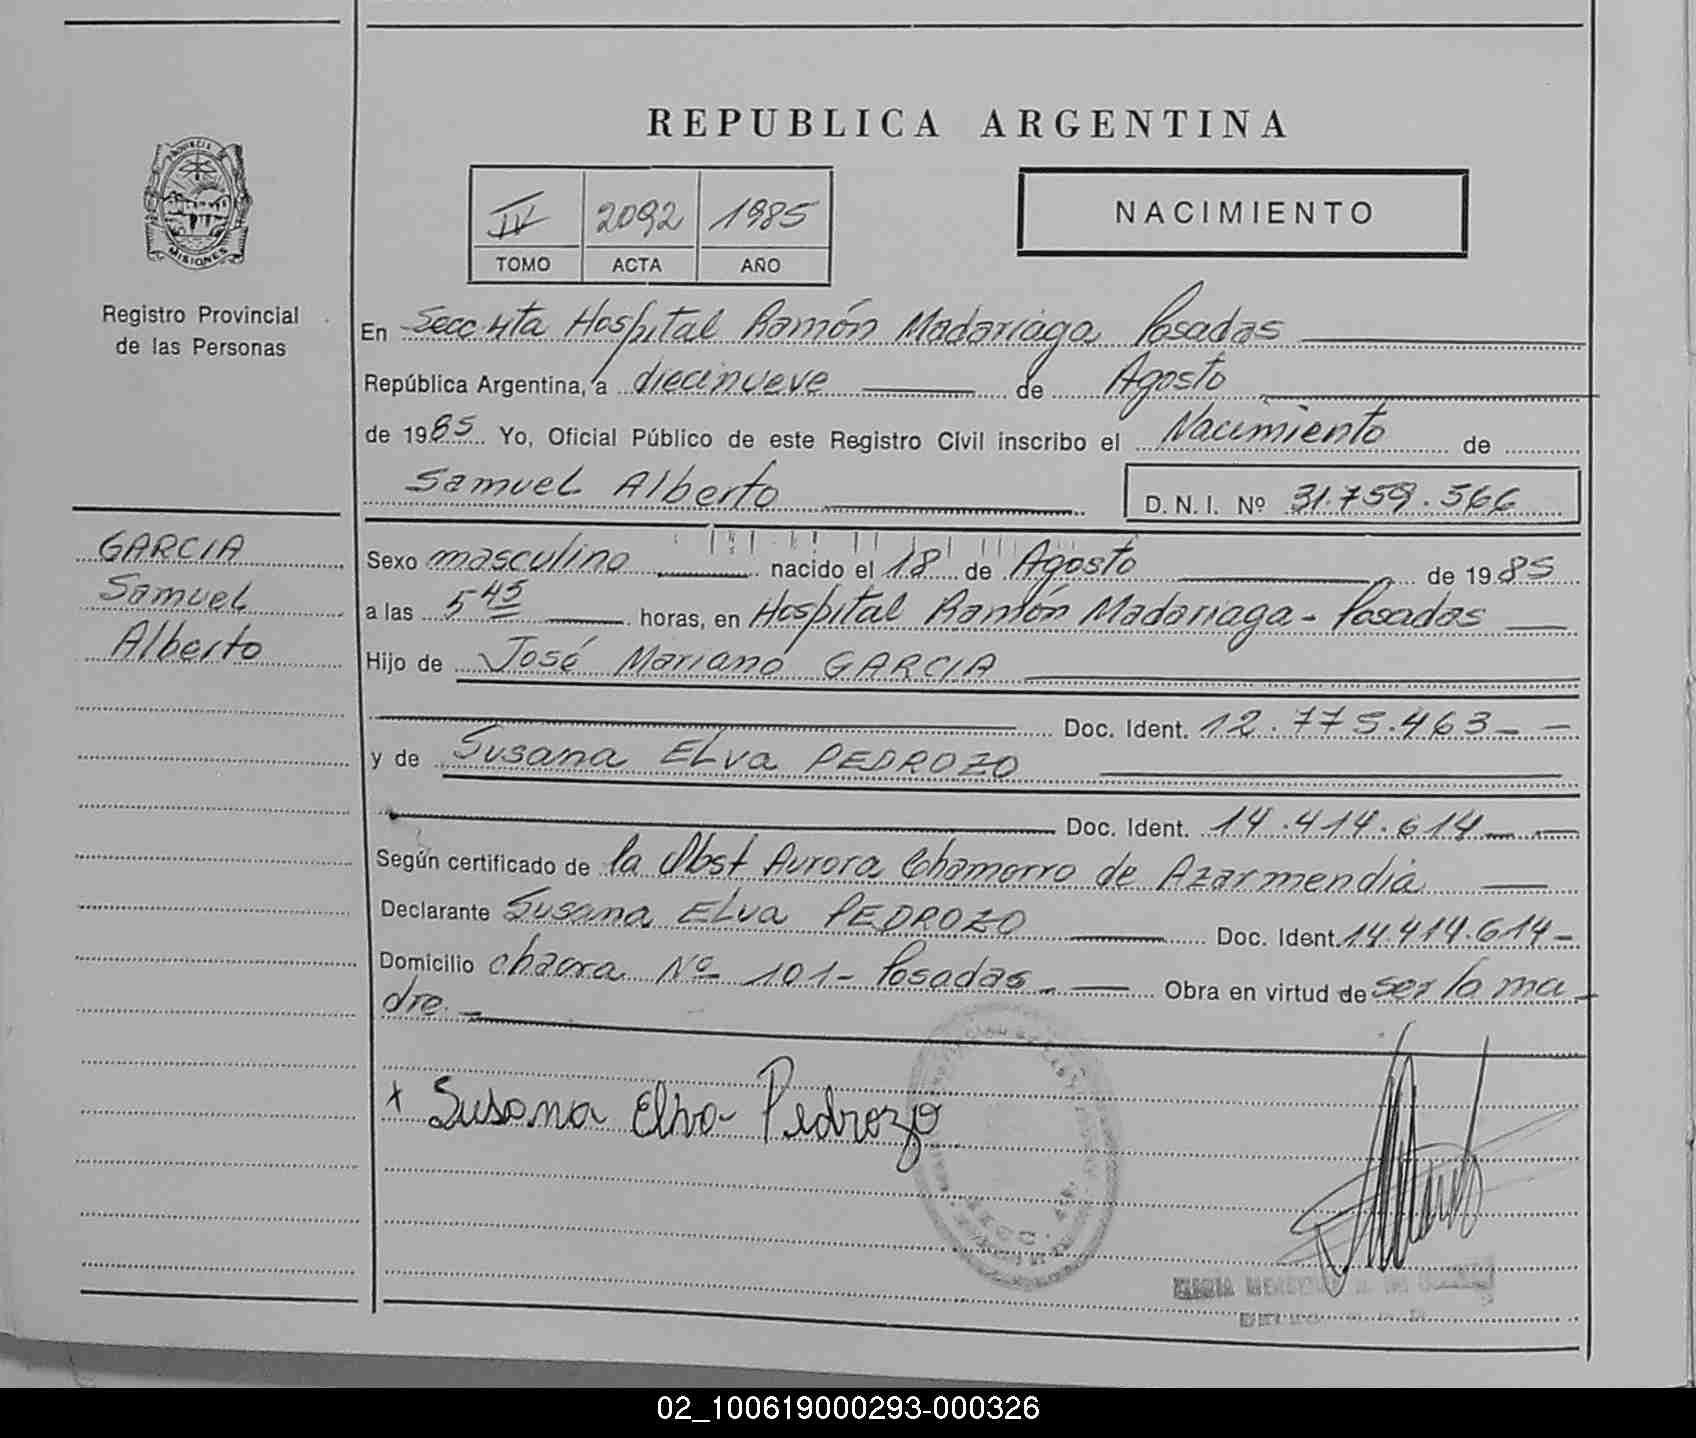 REPUBLICA ARGENTINA
PROVINCIA DE
MISIONES
IV 2092 1985
TOMO ACTA AÑO
NACIMIENTO
Registro Provincial
de las Personas
En Secc 4ta Hospital Ramón Madariaga Posadas
República Argentina, a diecinueve de Agosto
de 1985 Yo, Oficial Público de este Registro Civil inscribo el Nacimiento de
Samuel Alberto D. N. I. Nº 31.759.566
GARCIA
Samuel
Alberto
Sexo masculino nacido el 18 de Agosto de 1985
a las 5 45 horas, en Hospital Ramón Madariaga - Posadas
Hijo de José Mariano GARCIA
Doc. Ident. 12.775.463
y de Susana ELva PEDROZO
Doc. Ident. 14.414.614
Según certificado de la Obst Aurora Chamorro de Azarmendia
Declarante Susana ELva PEDROZO Doc. Ident. 14.414.614
Domicilio chacra Nº 101 - Posadas Obra en virtud de ser la ma
dre.
x Susana Elva Pedrozo
02_100619000293-000326